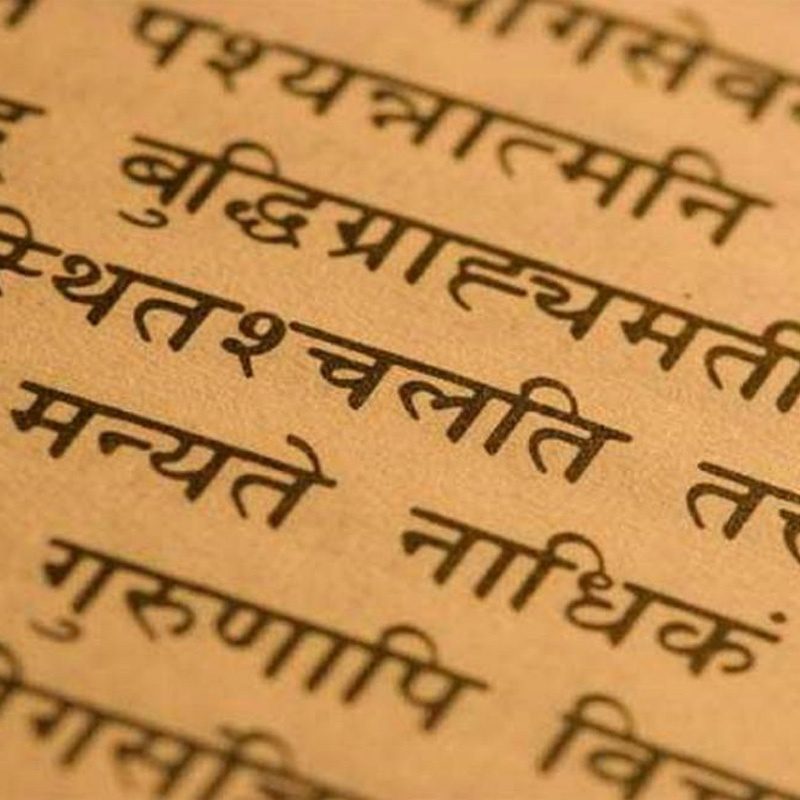 पश्यन्नात्मनि
बुद्धिग्राह्यमती
स्थितश्चलति
मन्यते नाधिकं
गुरुणापि